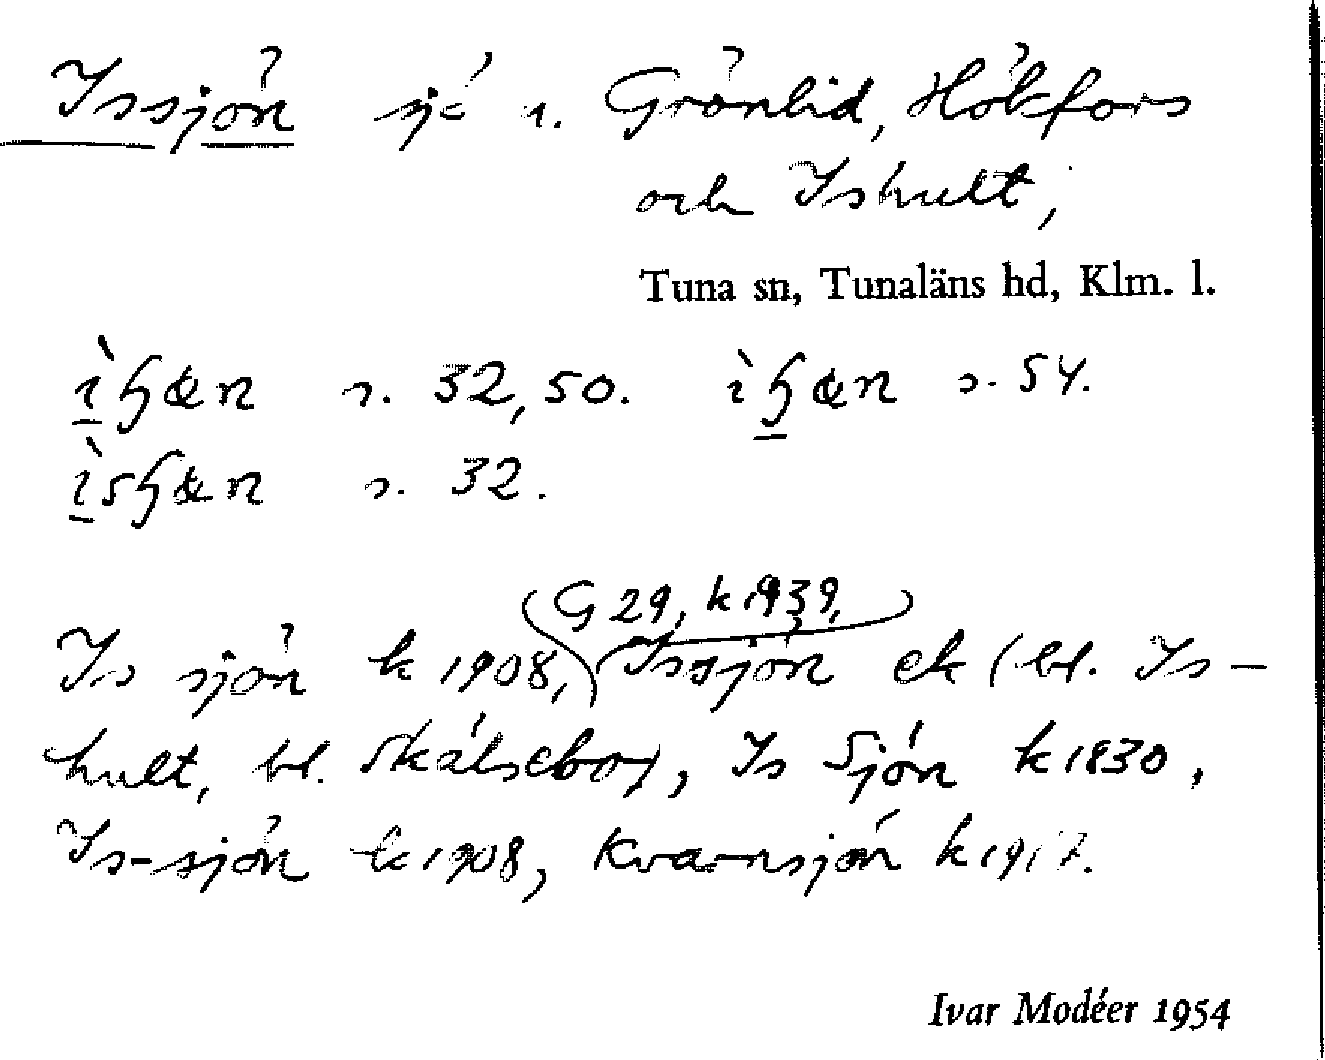 Issjön sjö s. Grönlid, Hökfors
och Ishult;
Tuna sn, Tunaläns hd, Klm. l.
s. 32, 50. s. 54.
s. 32.
G 29, k 1939,
Is sjön k 1908, Issjön ek (bl. Is-
hult, bl. Skälsebo), Is Sjön k 1830,
Is-sjön k 1908, Kvarnsjön k
Ivar Modéer 1954